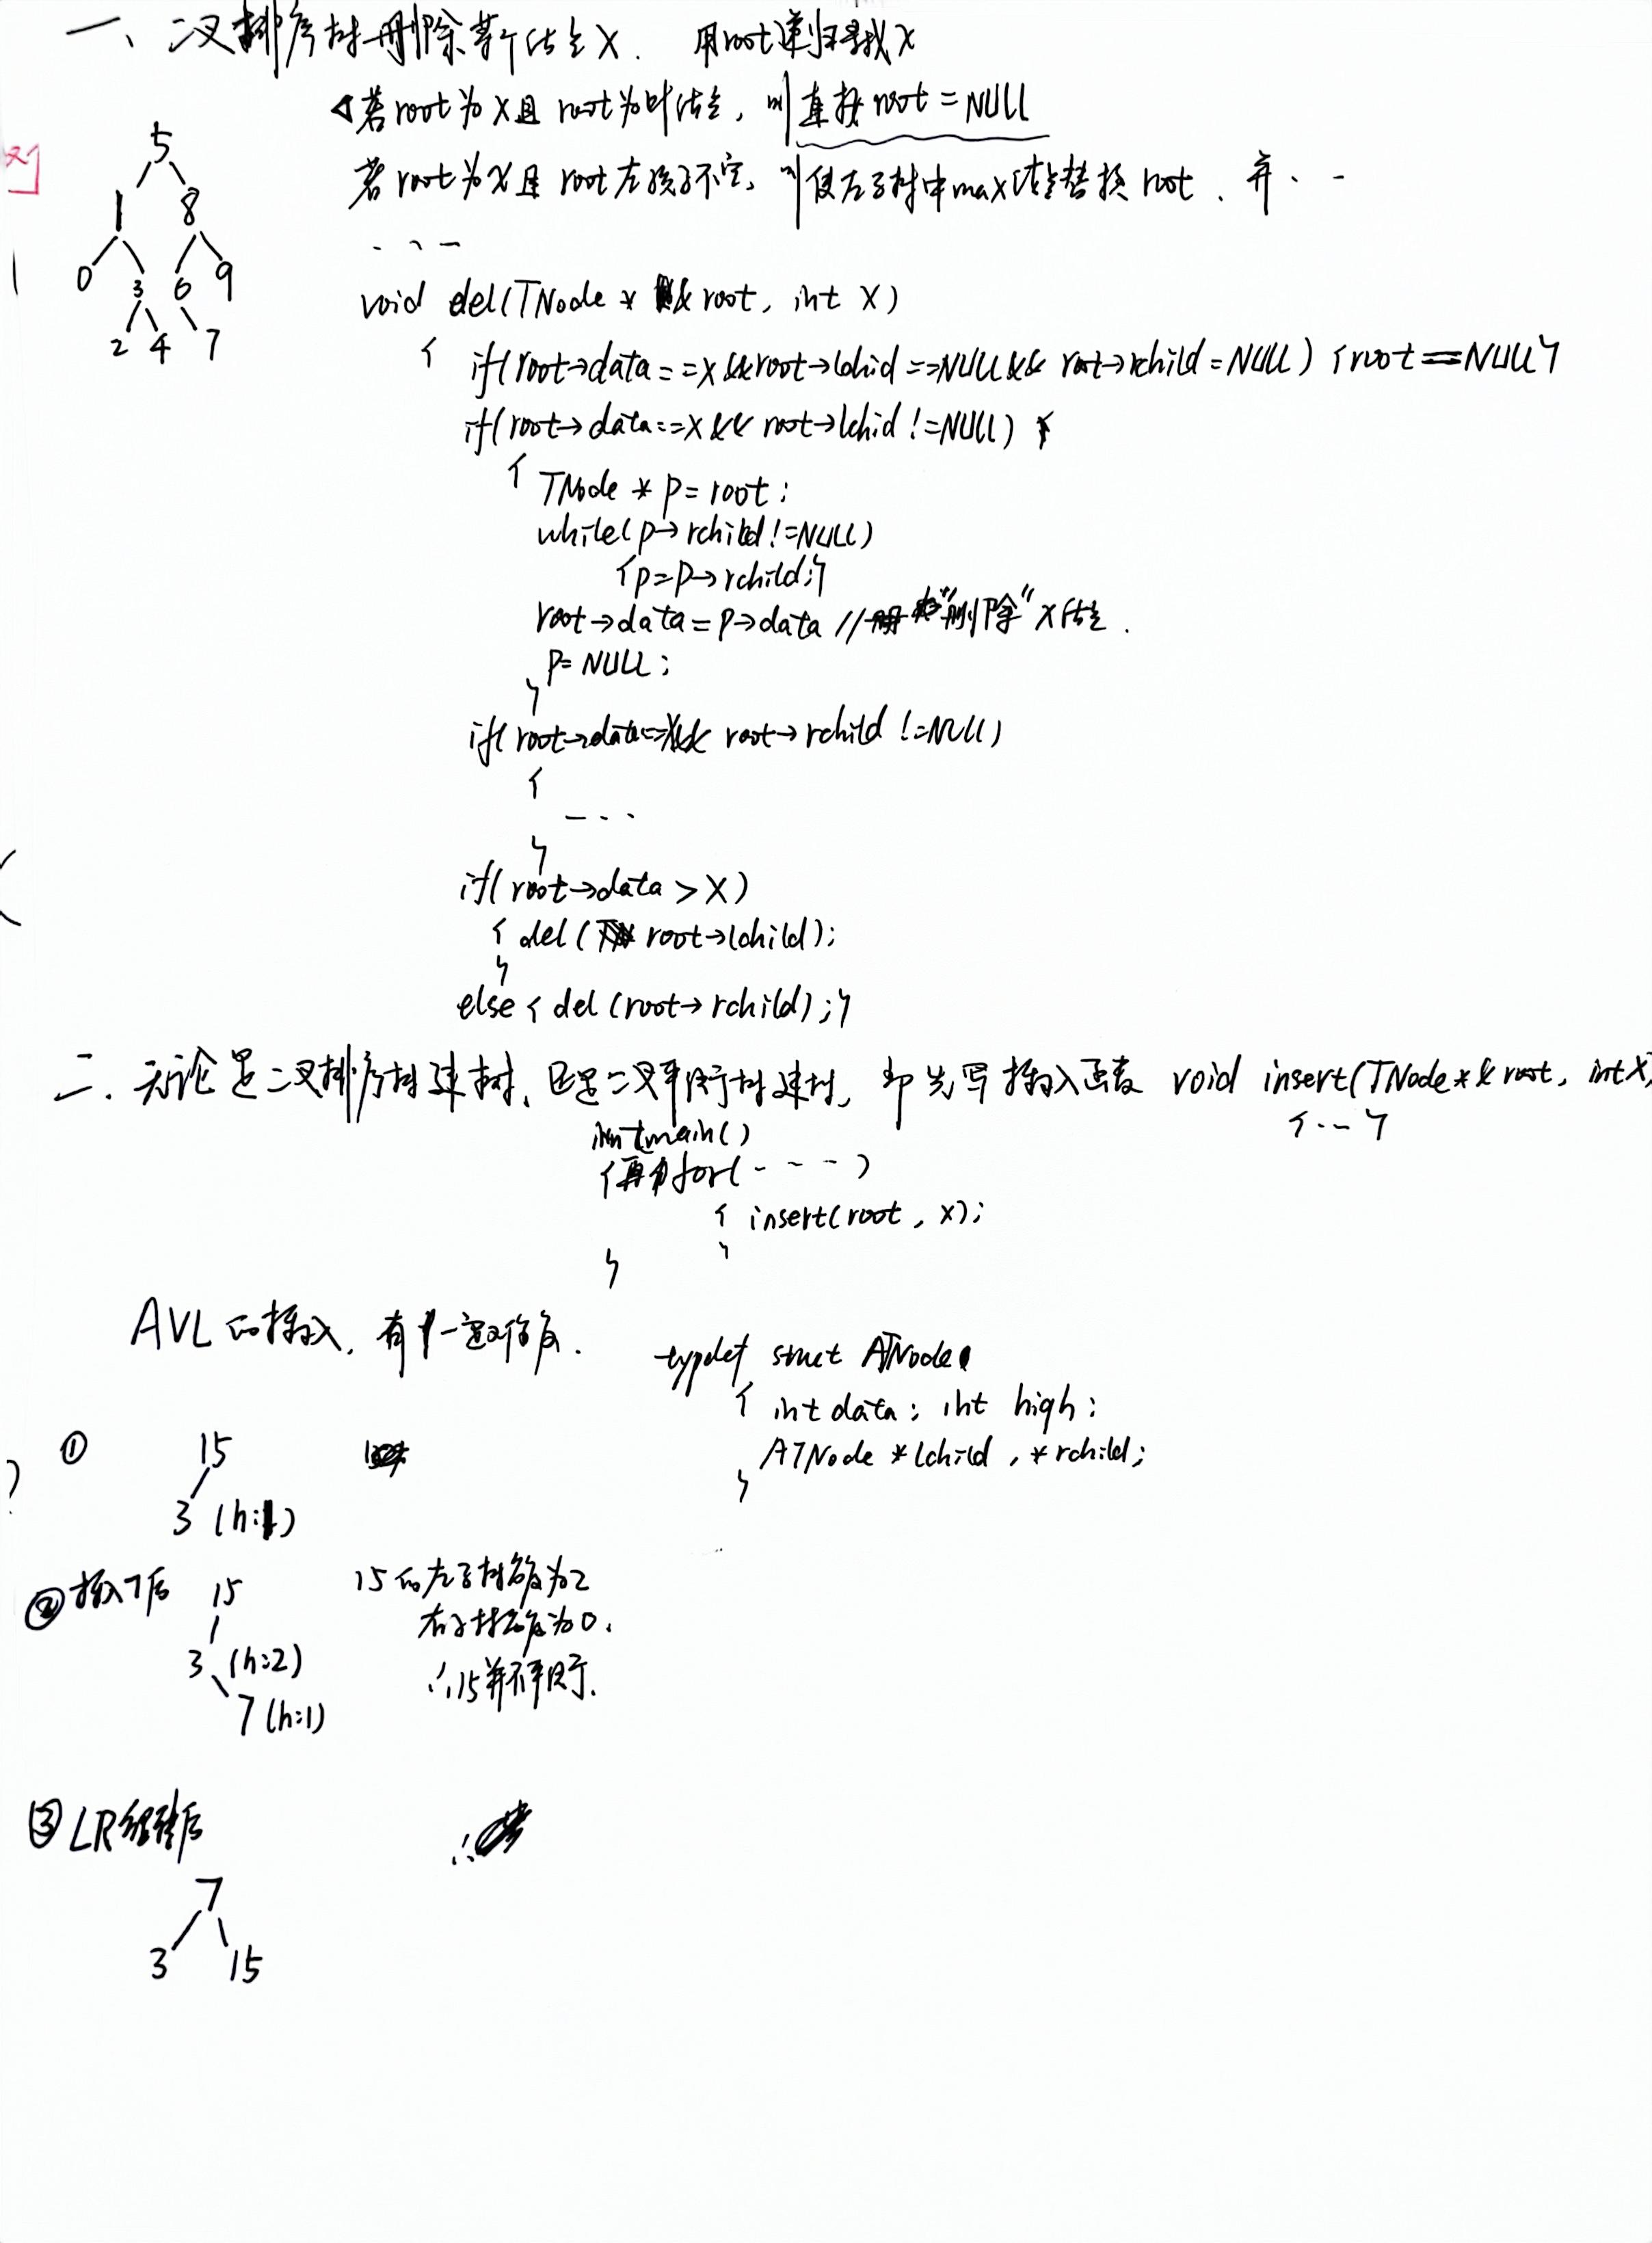 一、二叉排序树删除某个结点X. 用root递归寻找X
若root为X且root为叶结点, 则直接root=NULL
对
5
若root为X且root左孩子不空, 则使左子树中max结点替换root、并、..
1 8
...
0 3 6 9
void del(TNode *& root, int X)
2 4 7
{ if(root→data==X&&root→lchid==NULL&& root→rchild=NULL) {root==NULL}
if(root→data==X&& root→lchid!=NULL)
{ TNode * p=root;
while(p→rchild!=NULL)
{p=p→rchild;}
root→data=p→data //"删除"X结点.
p=NULL;
}
if(root→data==X&& root→rchild!=NULL)
{
...
}
if(root→data>X)
{ del( root→lchild);
}
else{ del(root→rchild);}
二. 无论是二叉排序树建树, 还是二叉平衡树建树, 即先写插入函数 void insert(TNode*& root, int X)
{...}
int main()
{再for(----)
{ insert(root, x);
}
}
AVL的插入, 有一定难度.
typdef struct ATNode
{ int data; int high;
ATNode *lchild, *rchild;
}
① 15
3 (h:1)
②插入7后 15
3 (h:2)
7(h:1)
15的左子树高度为2
右子树高度为0.
∴15并不平衡.
③LR旋转后
∴
7
3 15